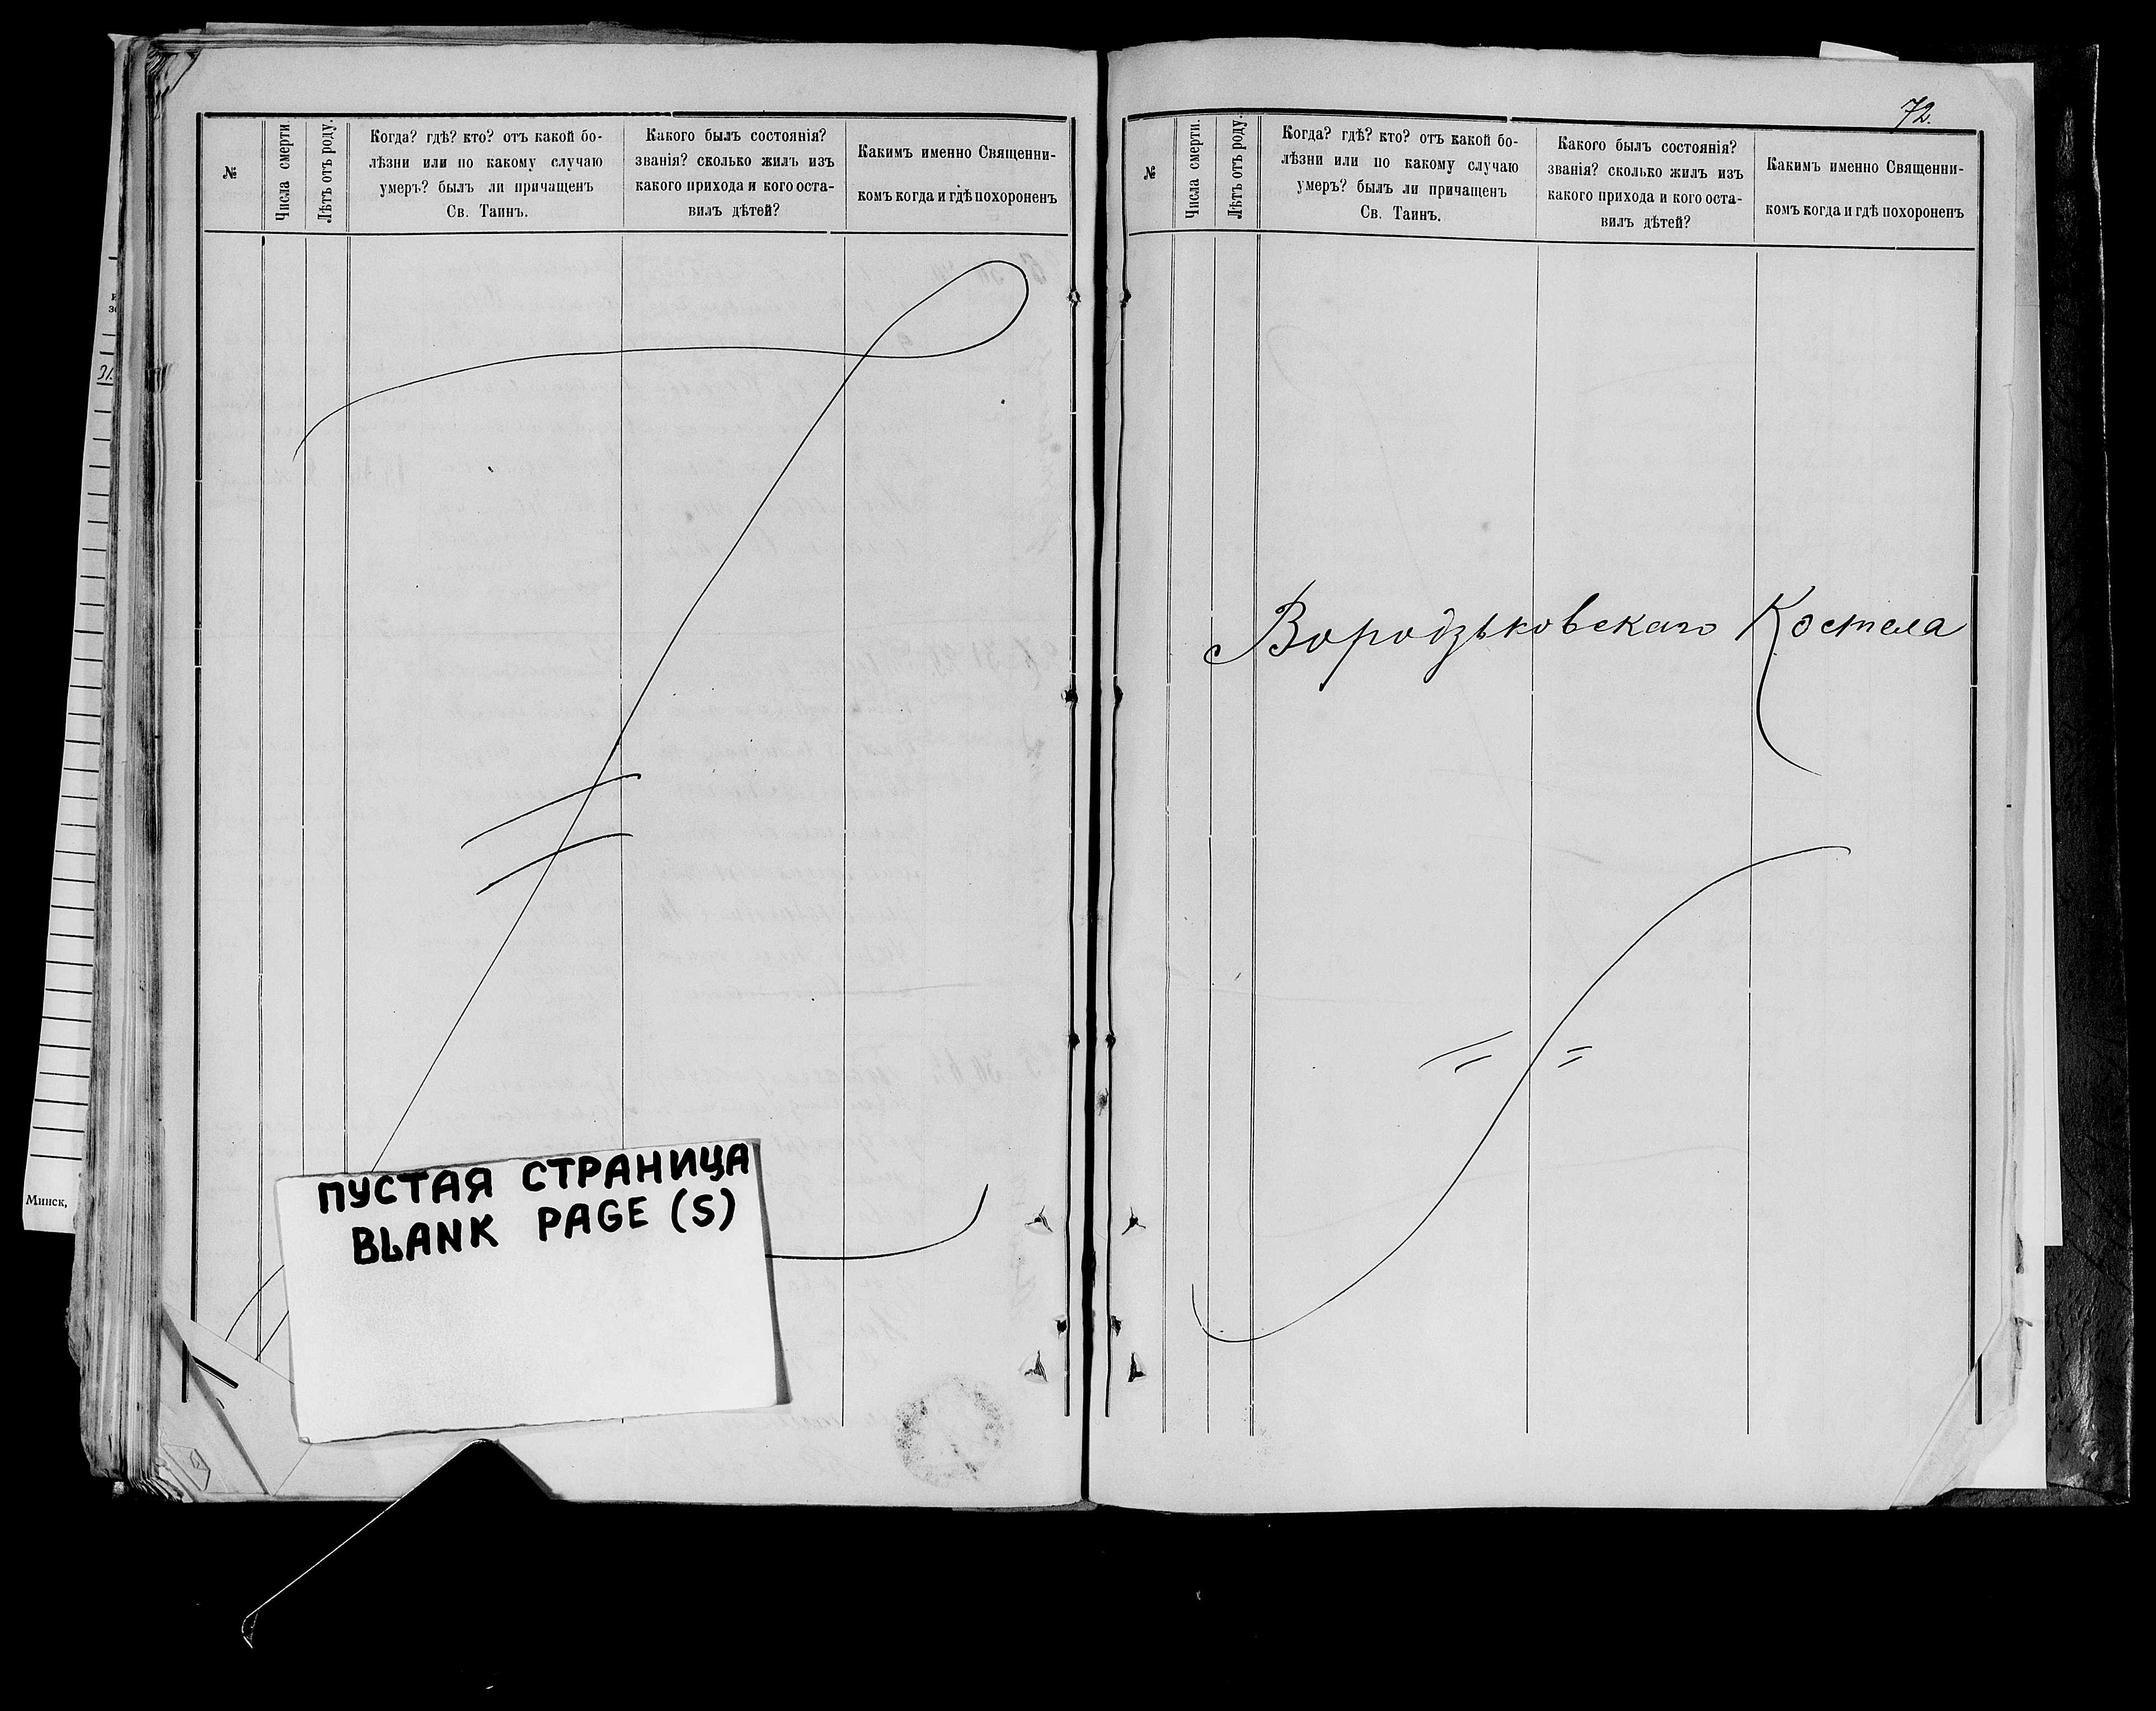 №
Числа смерти.
Лѣтъ отъ роду.
Когда? гдѣ? кто? отъ какой бо-
лѣзни или по какому случаю
умеръ? былъ ли причащенъ
Св. Таинъ.
Какого былъ состоянія?
званія? сколько жилъ изъ
какого прихода и кого оста-
вилъ дѣтей?
Какимъ именно Священни-
комъ когда и гдѣ похороненъ
31.
Минск,
ПУСТАЯ СТРАНИЦА
BLANK PAGE (S)
72.
№
Числа смерти.
Лѣтъ отъ роду.
Когда? гдѣ? кто? отъ какой бо-
лѣзни или по какому случаю
умеръ? былъ ли причащенъ
Св. Таинъ.
Какого былъ состоянія?
званія? сколько жилъ изъ
какого прихода и кого оста-
вилъ дѣтей?
Какимъ именно Священни-
комъ когда и гдѣ похороненъ
Вородзьковскаго Костела